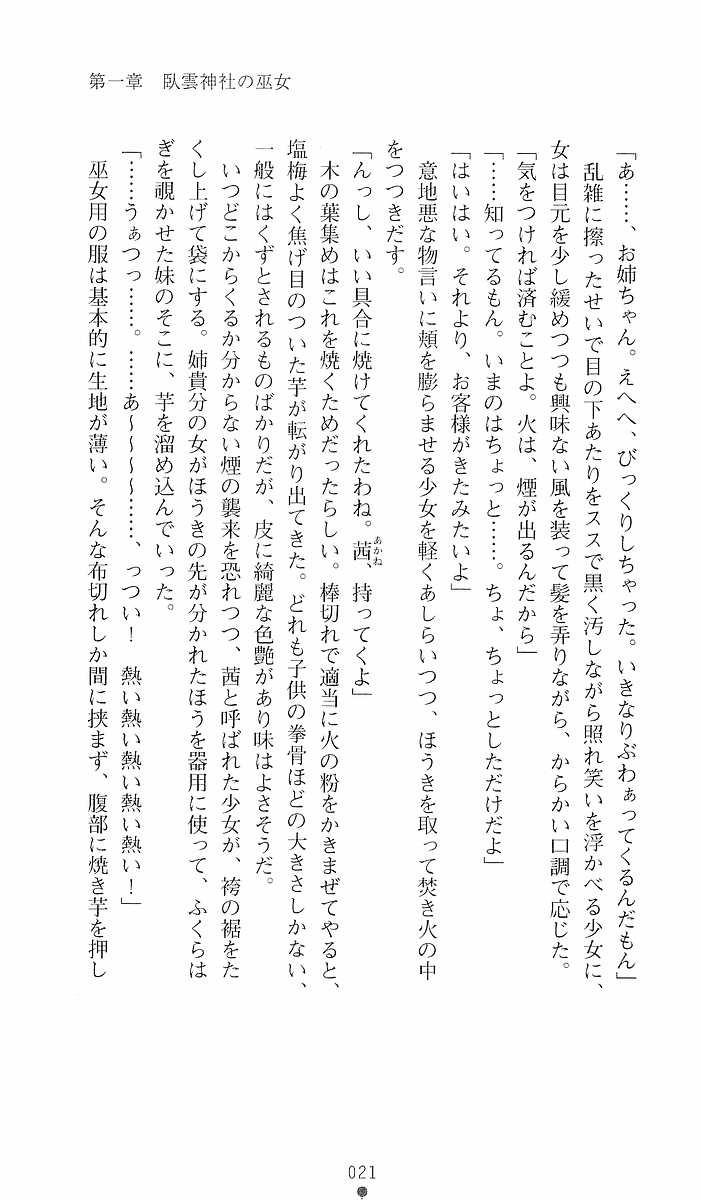 第一章　臥雲神社の巫女
「あ……、お姉ちゃん。えへへ、びっくりしちゃった。いきなりぶわぁってくるんだもん」
　乱雑に擦ったせいで目の下あたりをススで黒く汚しながら照れ笑いを浮かべる少女に、
女は目元を少し緩めつつも興味ない風を装って髪を弄りながら、からかい口調で応じた。
「気をつければ済むことよ。火は、煙が出るんだから」
「……知ってるもん。いまのはちょっと……。ちょ、ちょっとしただけだよ」
「はいはい。それより、お客様がきたみたいよ」
　意地悪な物言いに頬を膨らませる少女を軽くあしらいつつ、ほうきを取って焚き火の中
をつつきだす。
「んっし、いい具合に焼けてくれたわね。茜、持ってくよ」
あかね
　木の葉集めはこれを焼くためだったらしい。棒切れで適当に火の粉をかきまぜてやると、
塩梅よく焦げ目のついた芋が転がり出てきた。どれも子供の拳骨ほどの大きさしかない、
一般にはくずとされるものばかりだが、皮に綺麗な色艶があり味はよさそうだ。
　いつどこからくるか分からない煙の襲来を恐れつつ、茜と呼ばれた少女が、袴の裾をた
くし上げて袋にする。姉貴分の女がほうきの先が分かれたほうを器用に使って、ふくらは
ぎを覗かせた妹のそこに、芋を溜め込んでいった。
「……うぁつっ……。……あ～～～～……、っつい！　熱い熱い熱い熱い熱い！」
　巫女用の服は基本的に生地が薄い。そんな布切れしか間に挟まず、腹部に焼き芋を押し
021